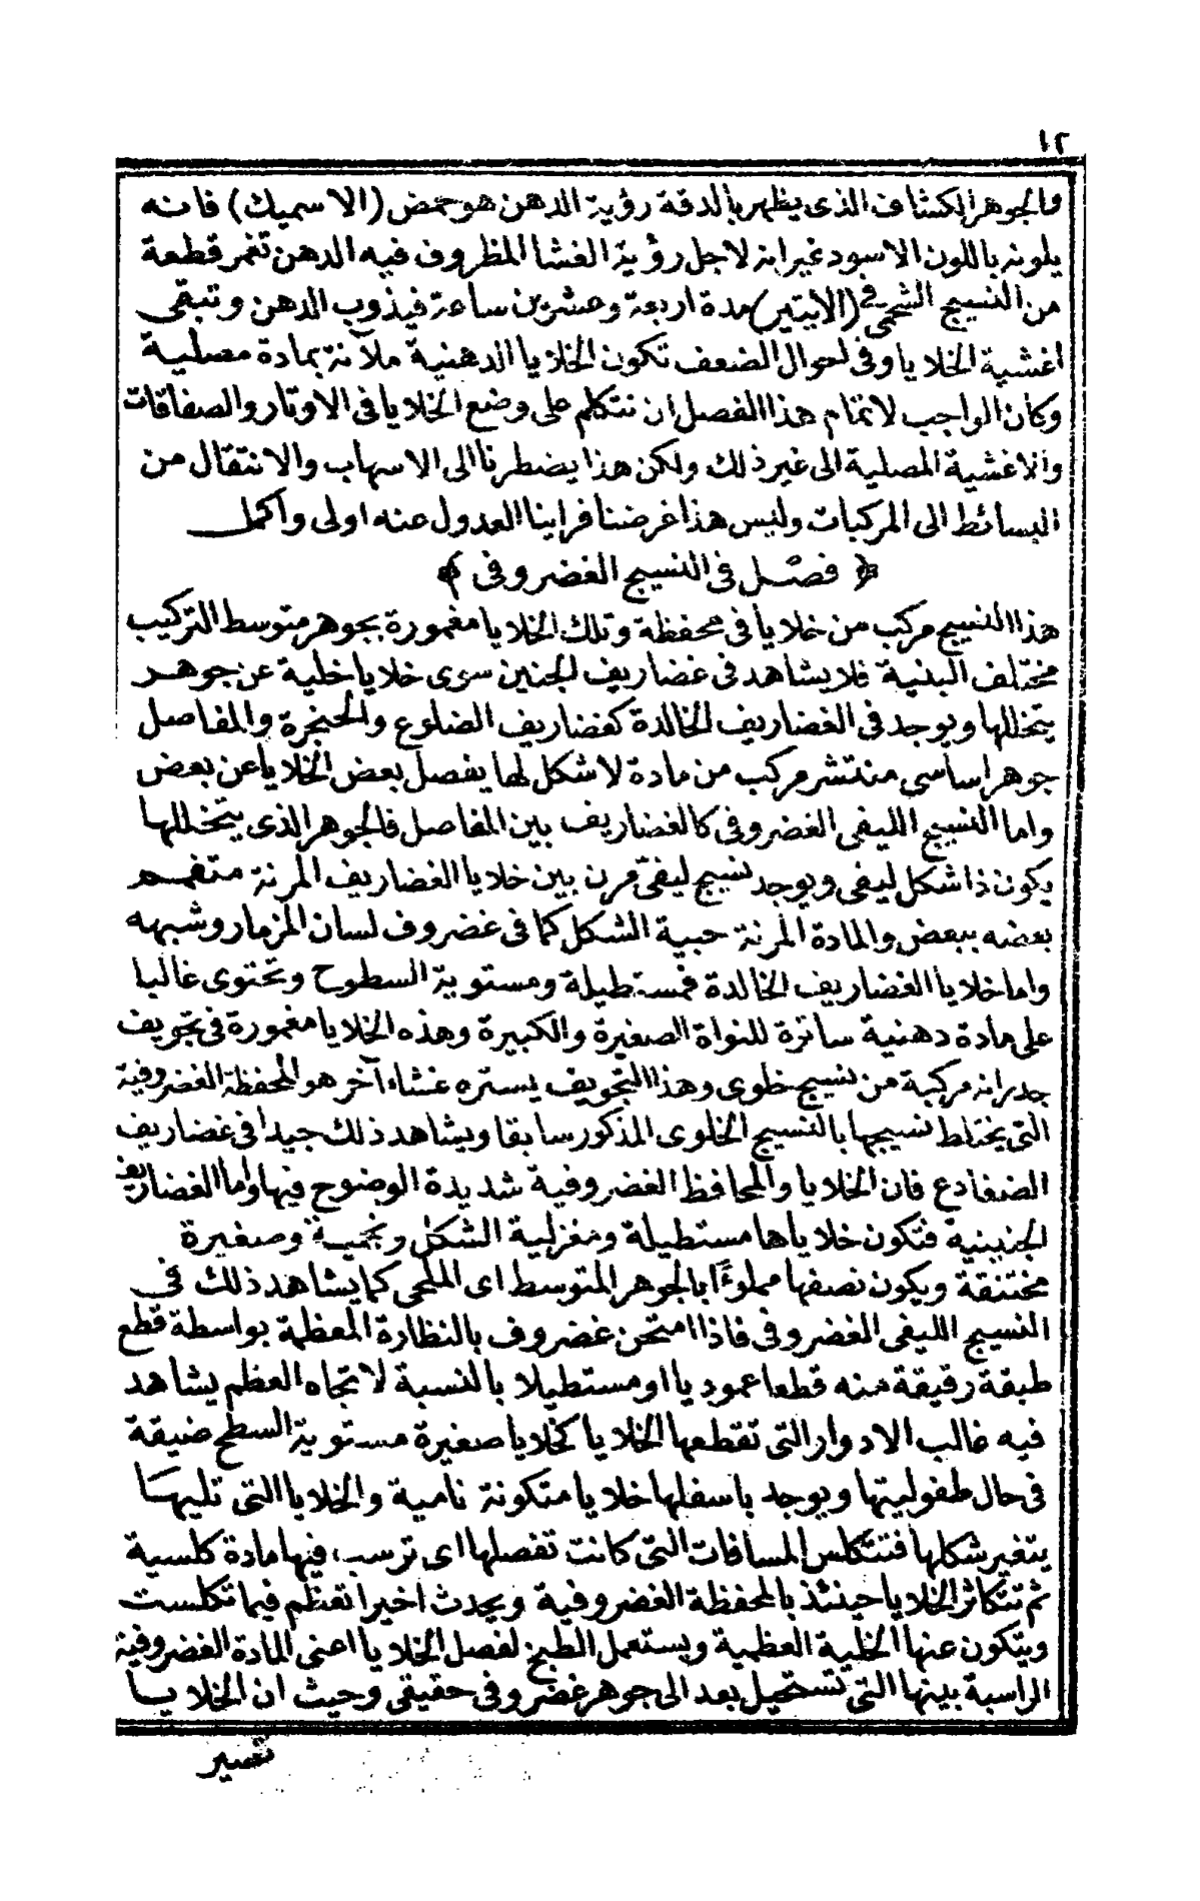 ١٢
والجوهر الكشاف الذى يظهر بالدقة رؤية الدهن هو حمض (الاسميك) فانه
يلونه باللون الاسود غير انه لاجل رؤية الغشا المظروف فيه الدهن تغمر قطعة
من النسيج الشحمى فى (الايتير) مدة اربعة وعشرين ساعة فيذوب الدهن وتبقى
اغشية الخلايا وفى احوال الضعف تكون الخلايا الدهنية ملآنة بمادة مصلية
وكان الواجب لاتمام هذا الفصل ان نتكلم على وضع الخلايا فى الاوتار والصفاقات
والاغشية المصلية الى غير ذلك ولكن هذا يضطرنا الى الاسهاب والانتقال من
البسائط الى المركبات وليس هذا غرضنا فراينا العدول عنه اولى واكمل
﴿ فصل فى النسيج الغضروفى ﴾
هذا النسيج مركب من خلايا فى محفظة وتلك الخلايا مغمورة بجوهر متوسط التركيب
مختلف البنية فلا يشاهد فى غضاريف الجنين سوى خلايا خلية عن جوهر
يتخللها ويوجد فى الغضاريف الخالدة كغضاريف الضلوع والحنجرة والمفاصل
جوهر اساسى منتشر مركب من مادة لا شكل لها يفصل بعض الخلايا عن بعض
واما النسيج الليفى الغضروفى كالغضاريف بين المفاصل فالجوهر الذى يتخللها
يكون ذا شكل ليفى ويوجد نسيج ليفى مرن بين خلايا الغضاريف المرنة متفمم
بعضه ببعض والمادة المرنة حبية الشكل كما فى غضروف لسان المزمار وشبهه
واما خلايا الغضاريف الخالدة فمستطيلة ومستوية السطوح وتحتوى غالبا
على مادة دهنية ساترة للنواة الصغيرة والكبيرة وهذه الخلايا مغمورة فى تجويف
جدرانه مركبة من نسيج خلوى وهذا التجويف يستره غشاء آخر هو المحفظة الغضروفية
التى يختلط نسيجها بالنسيج الخلوى المذكور سابقا ويشاهد ذلك جيدا فى غضاريف
الضفادع فان الخلايا والمحافظ الغضروفية شديدة الوضوح فيها واما الغضاريف
الجنينية فتكون خلاياها مستطيلة ومغزلية الشكل ونجمية وصغيرة
مختنقة ويكون نصفها مملوءًا بالجوهر المتوسط اى الملحى كما يشاهد ذلك فى
النسيج الليفى الغضروفى فاذا امتحن غضروف بالنظارة المعظمة بواسطة قطع
طبقة رقيقة منه قطعا عموديا او مستطيلا بالنسبة لاتجاه العظم يشاهد
فيه غالب الادوار التى تقطعها الخلايا كخلايا صغيرة مستوية السطح ضيقة
فى حال طفوليتها ويوجد باسفلها خلايا متكونة نامية والخلايا التى تليها
يتغير شكلها فتتكلس المسافات التى كانت تفصلها اى ترسب فيها مادة كلسية
ثم تتكاثر الخلايا حينئذ بالمحفظة الغضروفية ويحدث اخيرا تعظم فيما تكلست
ويتكون عنها الخلية العظمية ويستعمل الطبخ لفصل الخلايا اعنى المادة الغضروفية
الراسبة بينها التى تستحيل بعد الى جوهر غضروفى حقيقى وحيث ان الخلايا
تصير